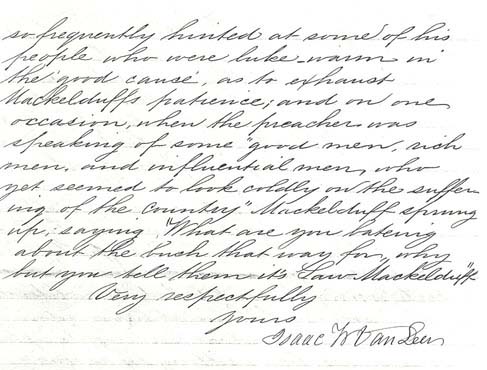 so frequently hinted at some of his
people who were luke-warm in
the 'good cause', as to exhaust
Mackelduffs patience; and on one
occasion, when the preacher was
speaking of some "good men, rich
men, and influential men, who
yet seemed to look coldly on the suffer-
ing of the country" Mackelduff sprung
up; saying "What are you bateing
about the buch that way for, why
but you tell them its Saw-Mackelduff"
Very respectfully
yours
Isaac W Van Leer